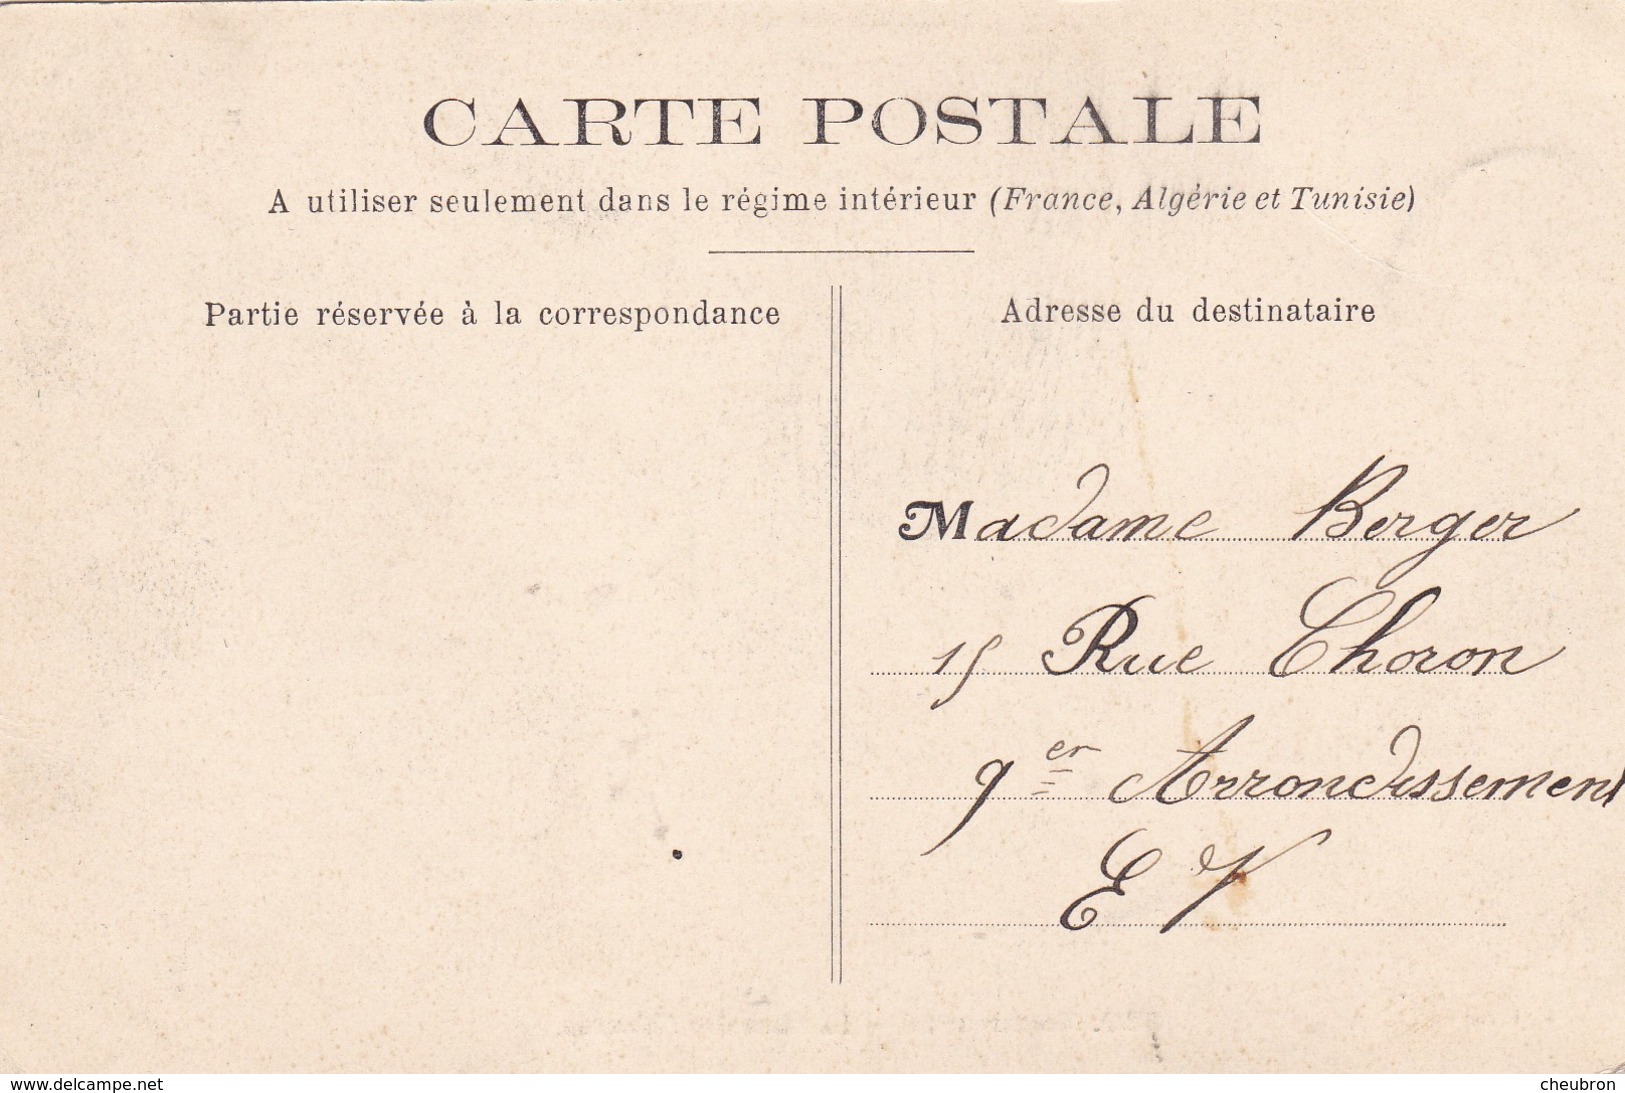 CARTE POSTALE
A utiliser seulement dans le régime intérieur (France, Algérie et Tunisie)
Partie réservée à la correspondance
Adresse du destinataire
Madame Berger
15 Rue Choron
9er Arrondissement
E V
www.delcampe.net
cheubron